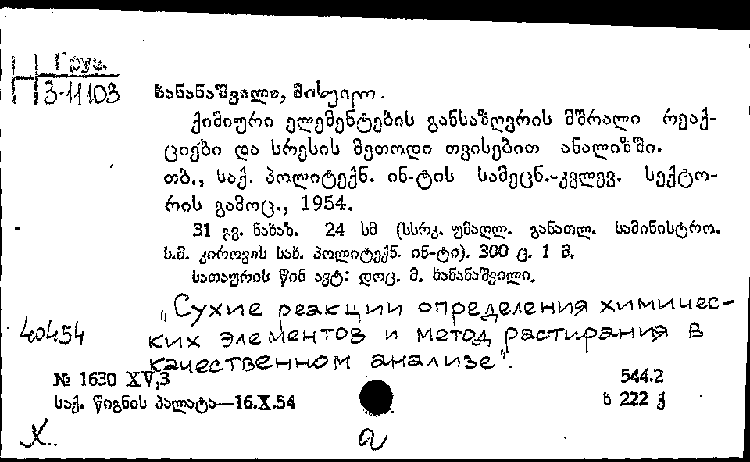 Н Груз.
3-11103
ხანანაშვილი, მიხეილ.
ქიმიური ელემენტების განსაზღვრის მშრალი რეაქ-
ციები და სრესის მეთოდი თვისებით ანალიზში.
თბ., საქ. პოლიტექნ. ინ-ტის სამეცნ.-კვლევ. სექტო-
რის გამოც., 1954.
31 გვ. ნახაზ. 24 სმ (სსრკ. უმაღლ. განათლ. სამინისტრო.
ს.მ. კიროვის სახ. პოლიტექნ. ინ-ტი). 300 ც. 1 მ.
სათაურის წინ ავტ: დოც. მ. ხანანაშვილი.
„Сухие реакции определения химичес-
40454 ких элементов и метод растирания в
качественном анализе".
№ 1630 XV,3 544.2
საქ. წიგნის პალატა—16.X.54 ხ 222 ქ
X. a